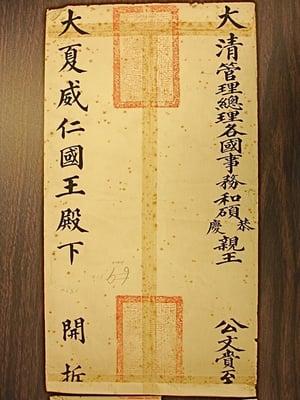 大清管理總理各國事務和碩恭慶親王 公文賫至
大夏威仁國王殿下 開拆